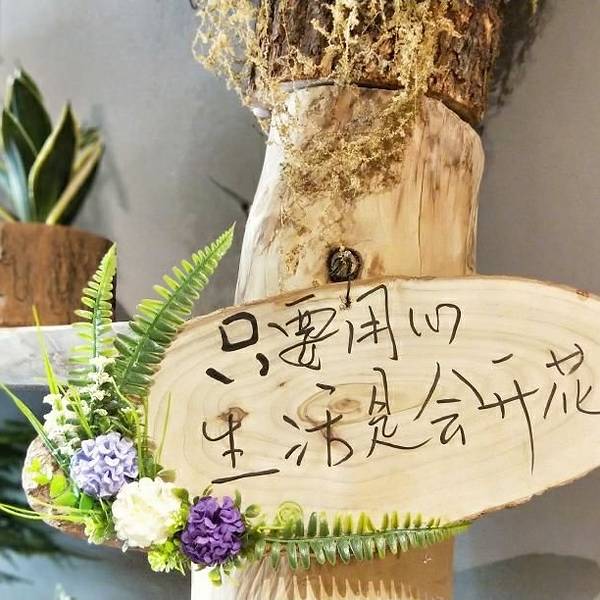 只要用心
生活是会开花